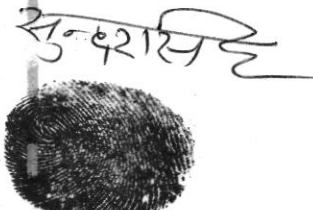 सुन्दरसिंह